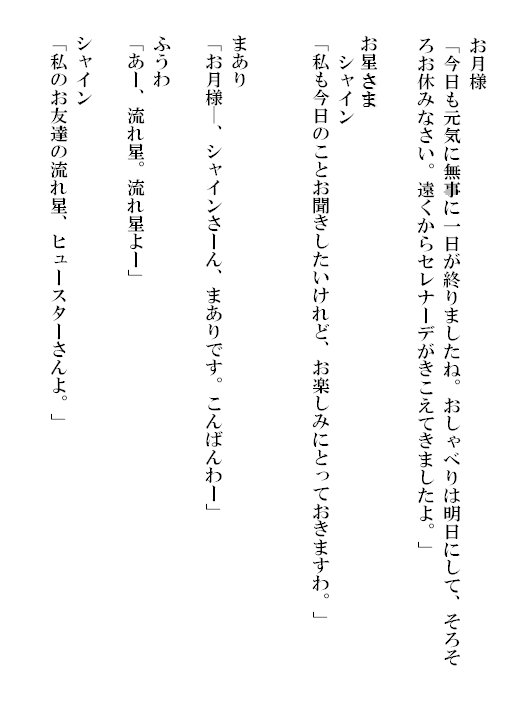 お月様
「今日も元気に無事に一日が終りましたね。おしゃべりは明日にして、そろそ
ろお休みなさい。遠くからセレナーデがきこえてきましたよ。」
お星さま
シャイン
「私も今日のことお聞きしたいけれど、お楽しみにとっておきますわ。」
まあり
「お月様―、シャインさーん、まありです。こんばんわー」
ふうわ
「あー、流れ星。流れ星よー」
シャイン
「私のお友達の流れ星、ヒュースターさんよ。」